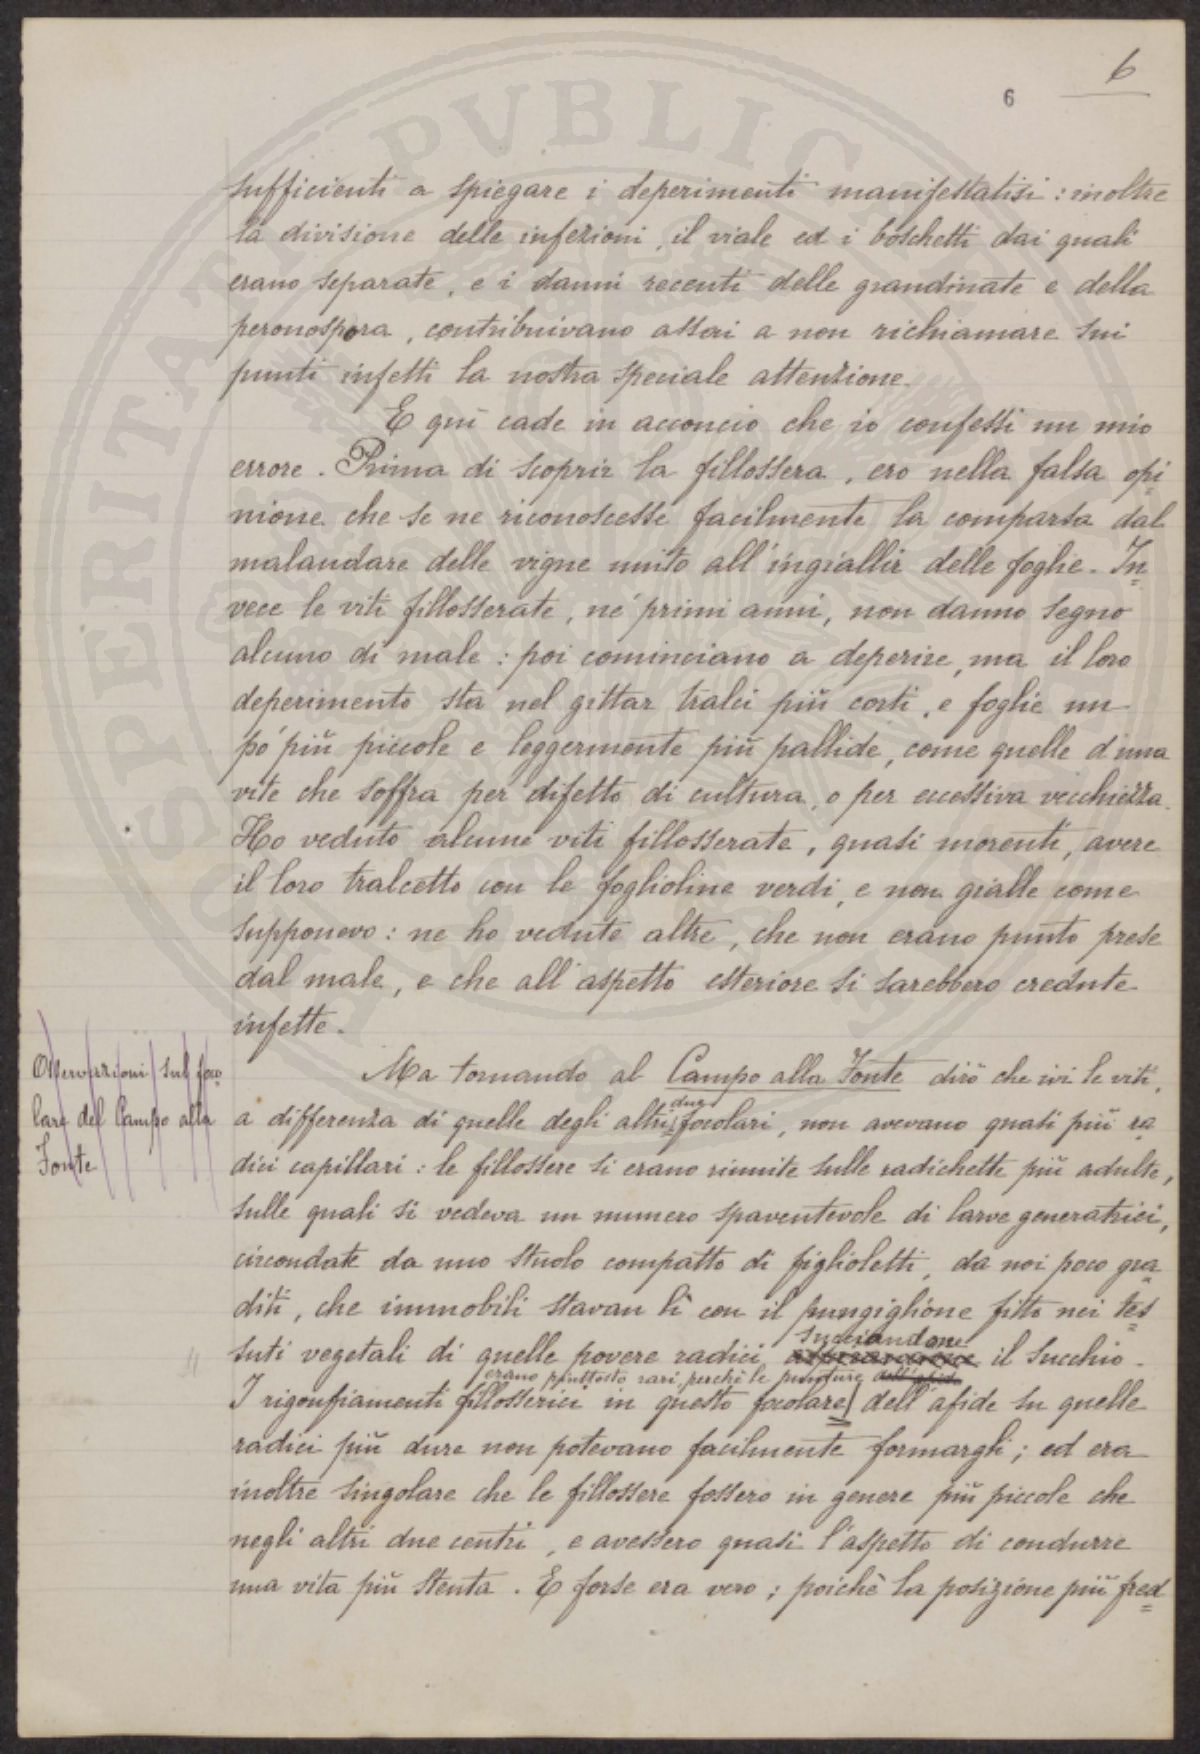 6
6
sufficienti a spiegare i deperimenti manifestatisi: inoltre
la divisione delle infezioni, il viale ed i boschetti dai quali
erano separate, e i danni recenti delle grandinate e della
peronospora, contribuivano assai a non richiamare sui
punti infetti la nostra speciale attenzione.
E qui cade in acconcio che io confessi un mio
errore. Prima di scoprir la fillossera, ero nella falsa opi=
nione che se ne riconoscesse facilmente la comparsa dal
malandare delle vigne unito all'ingiallir delle foglie. In=
vece le viti fillosserate, ne' primi anni, non danno segno
alcuno di male: poi cominciano a deperire, ma il loro
deperimento sta nel gittar tralci più corti, e foglie un
po' più piccole e leggermente più pallide, come quelle d'una
vite che soffra per difetto di cultura, o per eccessiva vecchiezza.
Ho veduto alcune viti fillosserate, quasi morenti, avere
il loro tralcetto con le foglioline verdi, e non gialle come
supponevo: ne ho vedute altre, che non erano punto prese
dal male, e che all'aspetto esteriore si sarebbero credute
infette.
Osservazioni sul foco=
lare del Campo alla
Fonte
Ma tornando al Campo alla Fonte dirò che ivi le viti,
a differenza di quelle degli altri due focolari, non avevano quasi più ra=
dici capillari: le fillossere si erano riunite sulle radichette più adulte,
sulle quali si vedeva un numero spaventevole di larve generatrici,
circondate da uno stuolo compatto di figlioletti, da noi poco gra=
diti, che immobili stavan lì con il pungiglione fitto nei tes=
suti vegetali di quelle povere radici succiandone il succhio.
erano piuttosto rari, perchè le punture dell'afide
I rigonfiamenti fillosserici in questo focolare dell'afide su quelle
radici più dure non potevano facilmente formargli; ed era
inoltre singolare che le fillossere fossero in genere più piccole che
negli altri due centri, e avessero quasi l'aspetto di condurre
una vita più stenta. E forse era vero; poichè la posizione più fred=
PVBLIC